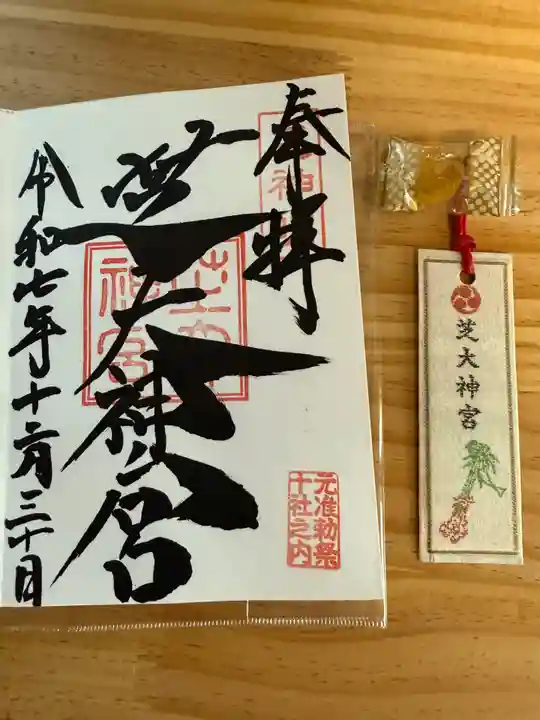 奉拝
芝大神宮
芝大神宮
令和七年十二月三十日
元准勅祭
十社之内
芝大神宮